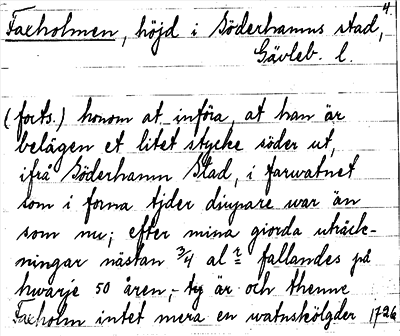 4.
Faxholmen, höjd i Söderhamns stad,
Gävleb. l.
(forts.) honom at införa, at han är
belägen et litet stycke söder ut,
ifrå Söderhamn Stad, i farwatnet
som i forna tjder diupare war än
som nu; efter mina giorda uträck-
ningar nästan 3/4 al r fallandes på
hwarje 50 åren,- ty är och thenne
Faxholm intet mera en watnskölgder 1726